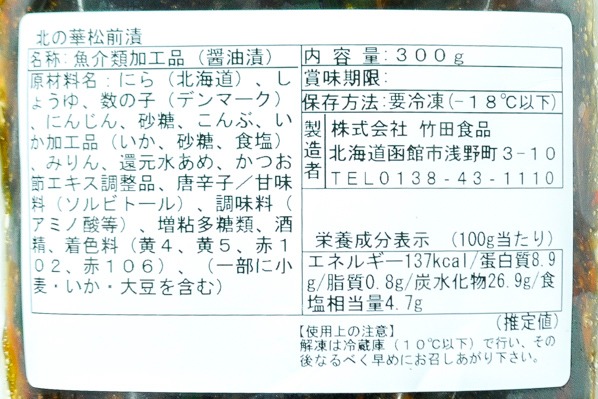 北の華松前漬
名称:魚介類加工品（醤油漬）
原材料名：にら（北海道）、し
ょうゆ、数の子（デンマーク）
、にんじん、砂糖、こんぶ、い
か加工品（いか、砂糖、食塩）
、みりん、還元水あめ、かつお
節エキス調整品、唐辛子／甘味
料（ソルビトール）、調味料（
アミノ酸等）、増粘多糖類、酒
精、着色料（黄４、黄５、赤１
０２、赤１０６）、（一部に小
麦・いか・大豆を含む）
内容量:３００ｇ
賞味期限:
保存方法:要冷凍(－１８℃以下)
製造者
株式会社 竹田食品
北海道函館市浅野町３-１０
ＴＥＬ０１３８-４３-１１１０
栄養成分表示 （100g当たり）
エネルギー137kcal/蛋白質8.9
g/脂質0.8g/炭水化物26.9g/食
塩相当量4.7g
（推定値）
【使用上の注意】
解凍は冷蔵庫（１０℃以下）で行い、その
後なるべく早めにお召しあがり下さい。